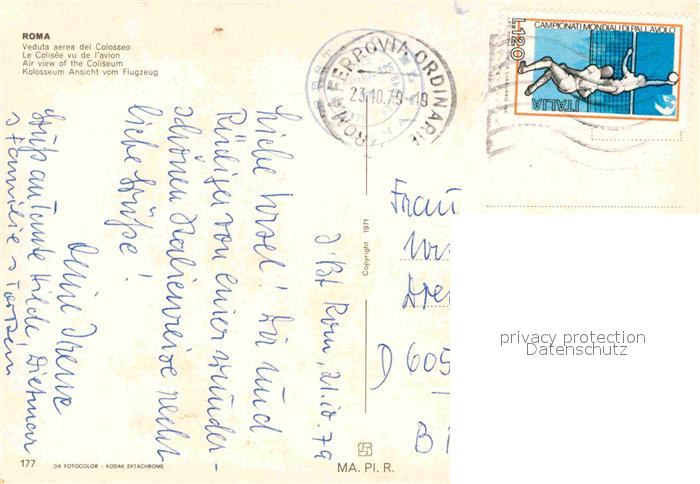 ROMA
Veduta aerea del Colosseo
Le Colisée vu de l'avion
Air view of the Coliseum
Kolosseum Ansicht vom Flugzeug
ROMA FERROVIA ORDINARIE
23.10.79-19
CAMPIONATI MONDIALI DI PALLAVOLO
L.120
ITALIA
z. Zt. Rom, 21.10.79
Liebe Ursel! Dir und
Rüdiger von einer wunder-
schönen Italienreise recht
liebe Grüße!
Deine Irene
Gruß an Tante Hilde, Dietmar
+ Familie + Torsten
Copyright 1971
Frau
D 605
privacy protection
Datenschutz
177
DA FOTOCOLOR - KODAK EKTACHROME
MA. PI. R.